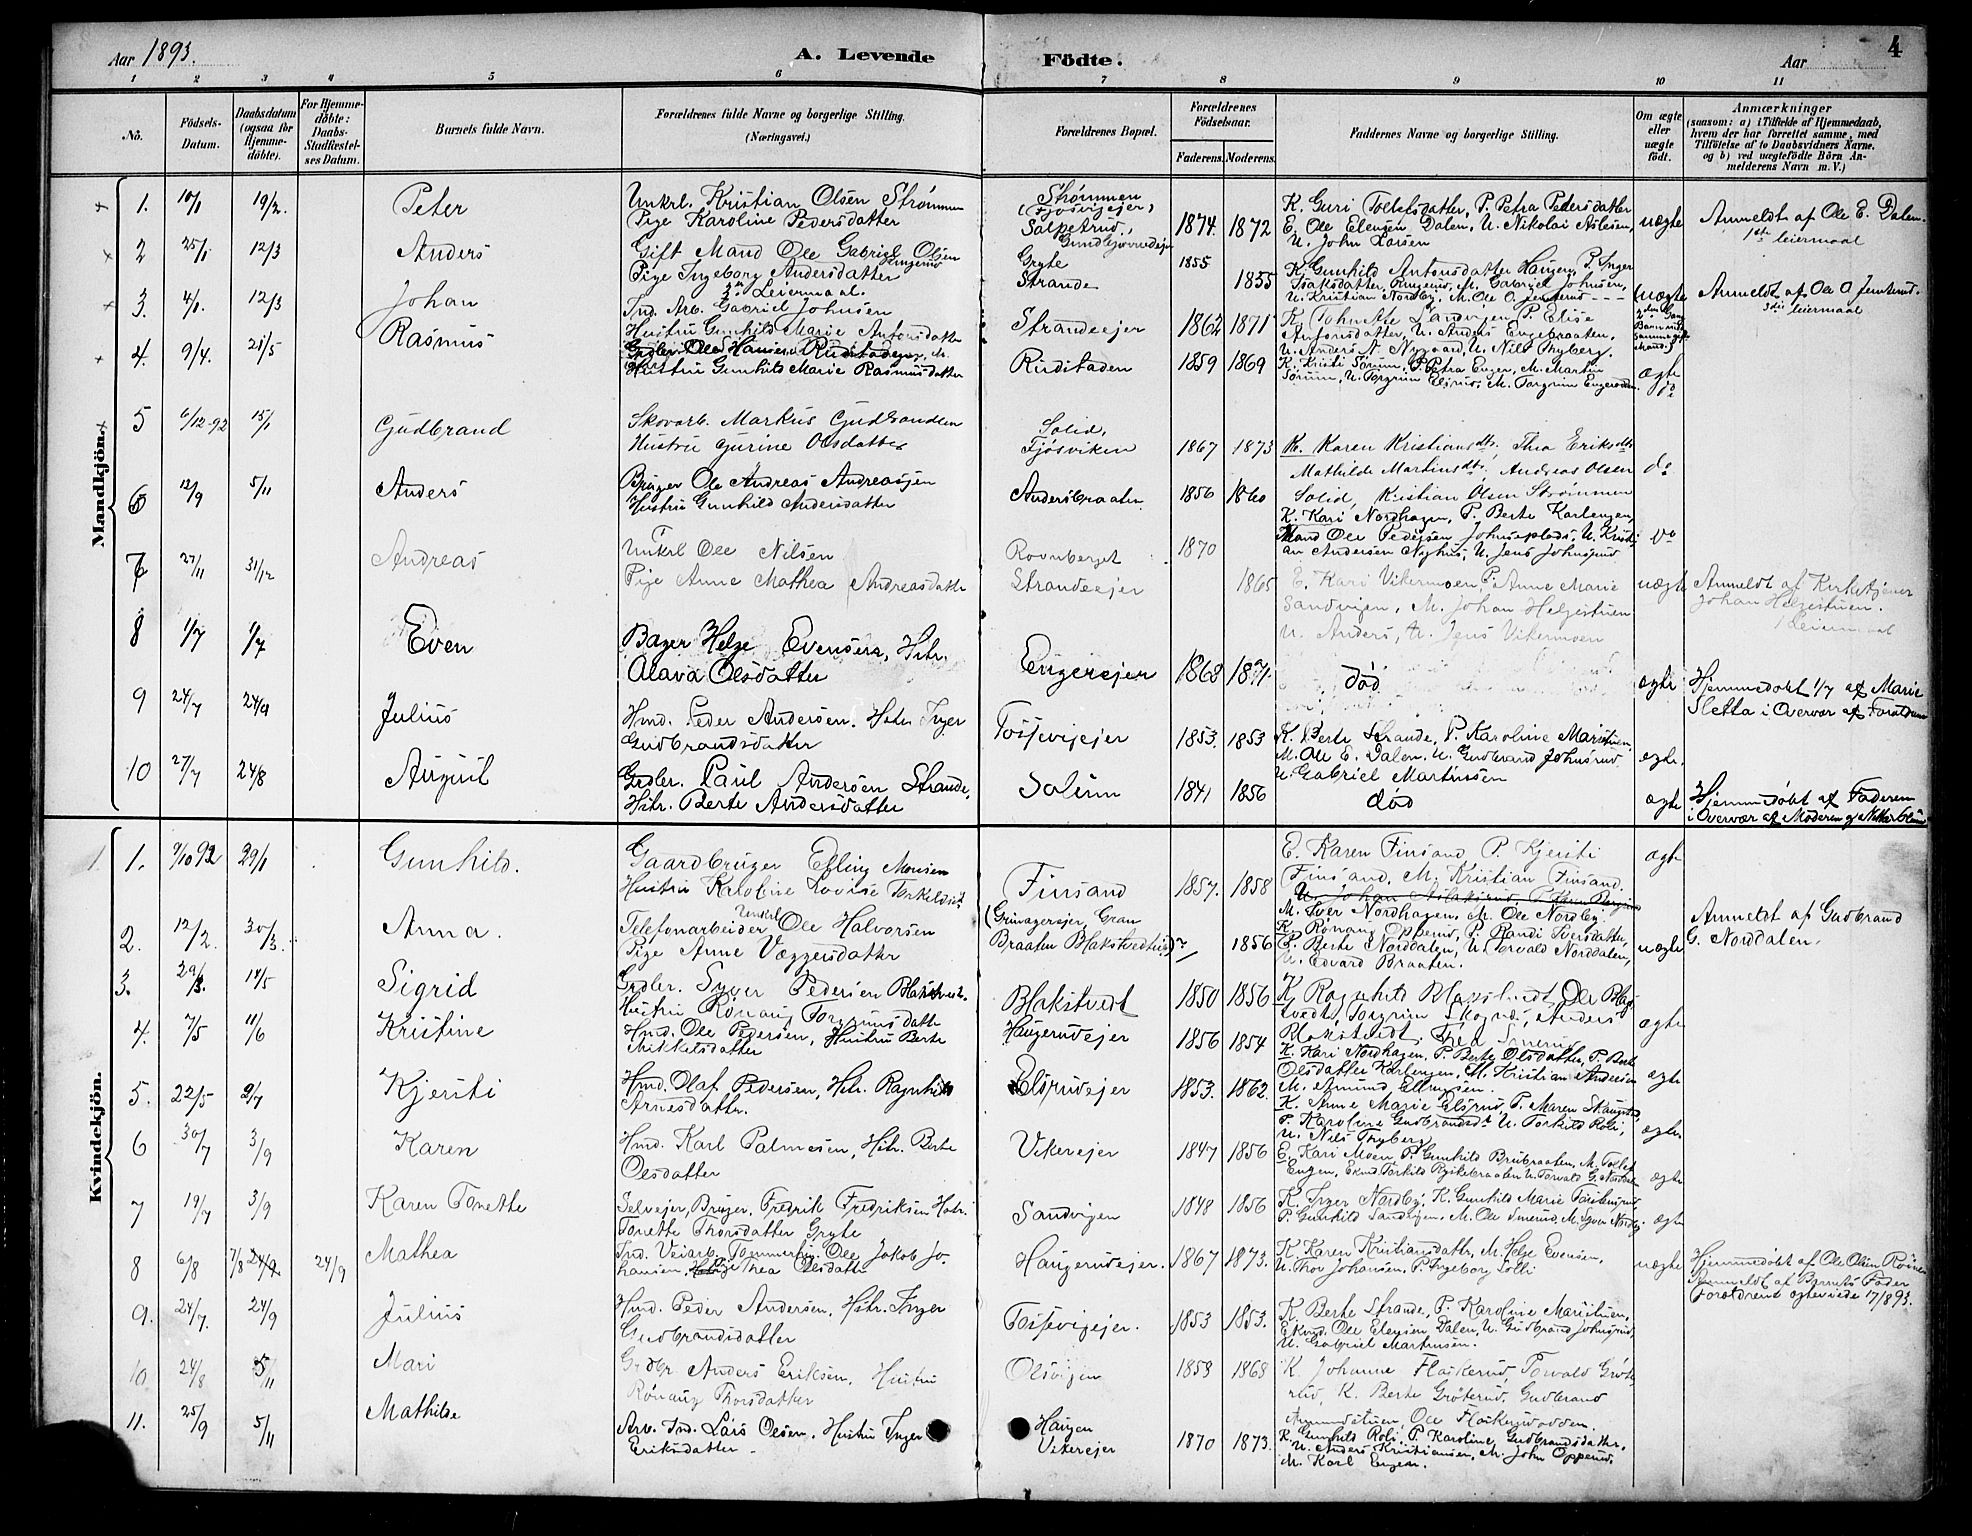 Aar 1893.
A. Levende
Födte.
Aar
4
1 2 3 4 5 6 7 8 9 10 11
Nô.
Födsels-
Datum.
Daabsdatum
(ogsaa for
Hjemme-
döbte).
For Hjemme-
döbte:
Daabs-
Stadfæstel-
ses Datum.
Barnets fulde Navn.
Forældrenes fulde Navne og borgerlige Stilling.
(Næringsvei.)
Forældrenes Bopæl.
Forældrenes
Födselsaar.
Faderens.
Moderens.
Faddernes Navne og borgerlige Stilling.
Om ægte
eller
uægte
födt.
Anmærkninger
(saasom: a) i Tilfælde af Hjemmedaab,
hvem der har forrettet samme, med
Tilföielse af to Daabsvidners Navne.
og b) ved uægtefödte Börn An-
melderens Navn m. V.)
Mandkjön.
1. 10/1 19/2. Peter
Unkrl. Kristian Olsen Strømmen
Pige Karoline Pedersdatter
Strømmen
1874. 1872
K. Guri Tollefsdatter, P. Petra Pedersdatter
E. Ole Elensen Dalen, U. Nikolai Nilsen,
U. John Larsen
uægte
Anmeldt af Ole E. Dalen.
1ste leiermaal
2 25/1 12/3 Anders
Gift Mand Ole Gabriel Olsen
Pige Ingeborg Andersdatter
2n Leiermaal.
Gryte
Strande
1855
1855
K. Gunhild Antonsdatter Haugen, P. Inger
Isaksdatter, M. Gabriel Johnsen,
U. Kristian Nordby, M. Ole O. Jemterud
uægte
Anmeldt af Ole O Jemterud.
3die leiermaal
3. 4/1. 12/3 Johan
Ind. Arb. Gabriel Johnsen
Hustru Gunhild Marie Antonsdatter
Strandeejer
1862 1871
K. Johnette Sandvigen P. Elise
Antonsdatter, U. Anders Engebraaten,
U. Anders N. Nygaard, U. Nils Thyberg.
4. 9/4. 21/5 Rasmus
Hustru Gunhild Marie Rasmusdatter
Rudstaden
1859 1869
K. Kristi Sörum, P. Petra Enger, M. Martin
Sörum, U. Torgrim Elsrud, M. Torgrim Engerodden
ægte
do
5 6/12-92 15/1 Gudbrand
Skovarb. Markus Gudbrandsen
Hustru Gurine Olsdatter
Solid,
Fjösviken
1867 1873
K. Karen Kristiansdtr, Thea Eriksdtr
Mathilde Martinsdtr, Andreas Olsen
Solid, Kristian Olsen Strømmen
do
6 12/9 5/11 Anders
Bruger Ole Andreas Andreassen
Hustru Gunhild Andersdatter
Andersbraaten.
1856 1860
K. Kari Nordhagen, P. Berte Karlengen,
Mand Ole Pedersen Johnsplads, U. Kristi-
an Andersen Nyhus, U. Jens Johnsrud
do
7 27/11 31/12 Andreas
Unkrl Ole Nilsen
Pige Anne Mathea Andreasdatter
Rovnberget
Strandeejer
1870
1865
E. Kari Vikermoen, P. Anne Marie
Sandvigen, M. Johan Helgestuen
U. Anders, U. Jens Vikermoen
uægte
Anmeldt af Kirketjener
Johan Helgestuen.
1 Leiermaal
8 1/7 1/7 Even
Bager Helge Evensen, Hstr.
Olava Olsdatter
Engerejer
1868 1871.
död.
ægte
Hjemmedøbt 1/7 af Marie
Sletta i Overvær af Forældrene
9 24/7 24/9 Julius
Hmd. Peder Andersen. Hstr. Inger
Gudbrandsdatter
Tossevigejer
1853. 1853
K. Berte Strande, P. Karoline Maristuen,
M. Ole E. Dalen, U. Gudbrand Johnsrud
U. Gabriel Martinsen
ægte.
10 27/7 24/8 August
Grdbr. Paul Andersen Strande,
Hstr. Berte Andersdatter
Solum
1841 1856
död
ægte
Hjemmedöbt af Faderen
i Overvær af Moderen og
Kvindekjön.
1. 9/10 92 29/1 Gunhild.
Gaardbruger Elling Monsen
Hustru Karoline Lovise Torkildsdt.
Finsand
1857. 1858
E. Karen Finsand P. Kjersti
Finsand, M. Kristian Finsand.
M. Iver Nordhagen, M. Ole Nordby.
ægte
2. 12/2. 30/3. Anna.
Telefonarbeider Unkrl Ole Halvorsen
Pige Anne Væggersdatter
(Grinagerejer, Gran
Braaten Blakstvedtejer)
1856
K. Rönaug Opperud, P. Randi Iversdatter,
P. Berte Norddalen, U. Torvald Norddalen,
U. Edvard Braaten.
uægte
Anmeldt af Gudbrand
G. Norddalen.
3. 29/3. 14/5 Sigrid
Grdbr. Syver Pedersen Blakstvedt.
Hustru Rönaug Torgrimsdatter
Blakstvedt
1850 1856
K. Ragnhild Blakstvedt, Ole Blak-
stvedt, Torgrim Skogrud, Anders
Blakstvedt, Thea Smerud
ægte
4. 7/5 11/6 Kristine
Hmd. Ole Pedersen, Hustru Berte
Mikkelsdatter
Haugerudejer
1856 1854
K. Kari Nordhagen, P. Berte Olsdatter, P. Berte
Olsdatter Karlengen, M. Kristian Andersen
M. Amund Ellingsen.
ægte
5. 22/5 2/7 Kjersti
Hmd. Olaf Pedersen, Hstr. Ragnhild
Arnesdatter.
Elsrudejer
1853. 1862.
K. Anne Marie Elsrud, P. Maren Skaugstad,
P. Karoline Gudbrandsdt. U. Torkild Roli,
U. Nils Thyberg
ægte.
6 30/7 3/9 Karen
Hmd. Karl Palmesen, Hstr. Berte
Olsdatter
Vikerejer
1847 1856
E. Kari Moen, P. Gunhild Brubraaten, M. Tollef
Engen, Ekmd. Torkild Rykebraaten U. Torvald G. Norddal
ægte
7 19/7 3/9 Karen Tonette
Selvejer Bruger. Fredrik Fredriksen Hstr.
Tonette Thorsdatter Gryte
Sandvigen
1848 1856
K. Inger Nordby, K. Gunhild Marie
P. Gunhild Sandvigen, M. Ole Smerud, M. Syver Nordby.
ægte
8 6/8 7/8 24/9. 24/9 Mathea
Ind. Veiarb. Tømmerhug. Ole Jakob Jo-
hansen, Pige Thea Olsdatter
Haugerudejer.
1867 1873.
K. Karen Kristiansdatter, M. Helge Evensen,
U. Thor Johansen, P. Ingeborg Solli
uægte
Hjemmedöbt af Ole Olsen
Anmeldt af Barnets Fader
Forældrene ægteviede 17/8 93.
9. 24/7. 24/9 Julius
Hmd. Peder Andersen, Hstr. Inger
Gudbrandsdatter
Tossevigejer.
1853 1853.
K. Berte Strande, P. Karoline Maristuen,
Ekmd. Ole Elensen Dalen, U. Gudbrand Johnsrud,
U. Gabriel Martinsen.
10 24/8 5/11 Mari
Grdbr Anders Eriksen, Hustru
Rönaug Thorsdatter
Olsvigen
1853 1868
K. Johanne Flaskerud, Torvald Gröte-
rud, K. Berte Gröterud, Gudbrand
11. 25/9 5/11 Mathilde
Arb. Ind. Lars Olsen, Hustru Inger
Eriksdatter.
Haugen
Vikerejer
1870 1873.
K. Gunhild Roli, P. Karoline Gudbrandsdatter,
U. Anders Kristiansen, M. John Opperud,
M. Karl Engen.